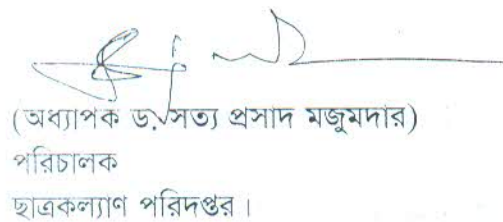 (অধ্যাপক ড. সত্য প্রসাদ মজুমদার)
পরিচালক
ছাত্রকল্যাণ পরিদপ্তর।